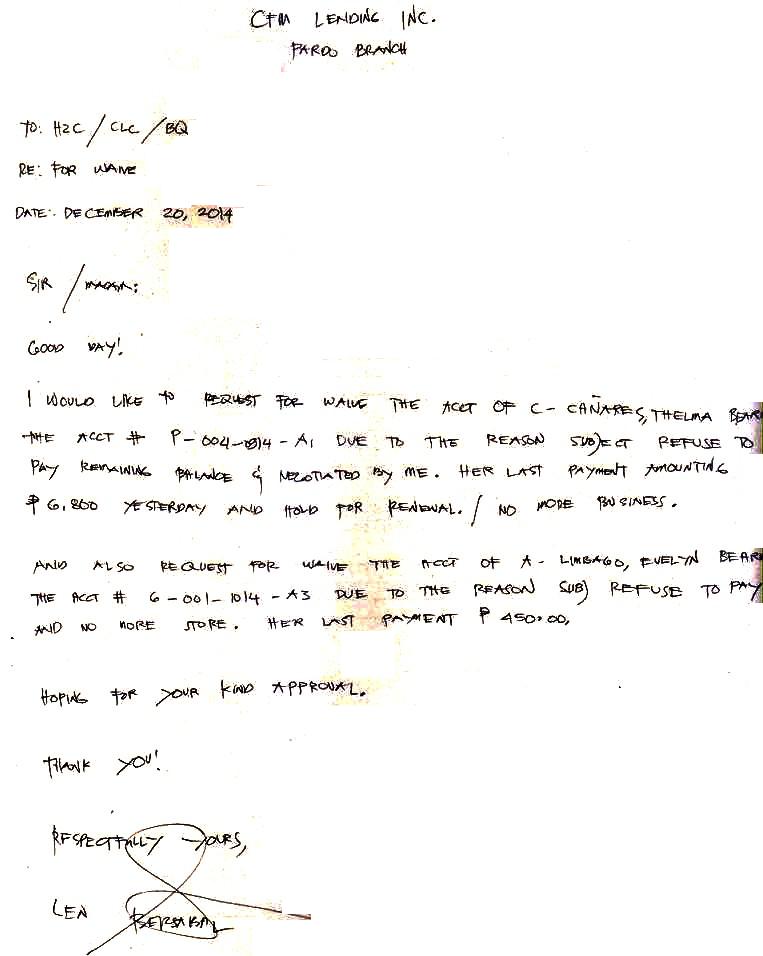 CFM LENDING INC.
PARDO BRANCH
TO: HZC / CLC / BQ
RE: FOR WAIVE
DATE: DECEMBER 20, 2014
SIR / MADAM:
GOOD DAY!
I WOULD LIKE TO REQUEST FOR WAIVE THE ACCT OF C- CAÑARES, THELMA BEAR
THE ACCT # P-004-1014-A1 DUE TO THE REASON SUBJECT REFUSE TO
PAY REMAINING BALANCE & NEGOTIATED BY ME. HER LAST PAYMENT AMOUNTING
₱ 6,800 YESTERDAY AND HOLD FOR RENEWAL. / NO MORE BUSINESS.
AND ALSO REQUEST FOR WAIVE THE ACCT OF A- LIMBAGO, EVELYN BEAR
THE ACCT # 6-001-1014-A3 DUE TO THE REASON SUBJ REFUSE TO PAY
AND NO MORE STORE. HER LAST PAYMENT ₱ 450.00,
HOPING FOR YOUR KIND APPROVAL.
THANK YOU!
RESPECTFULLY YOURS,
LEN BERSABAL